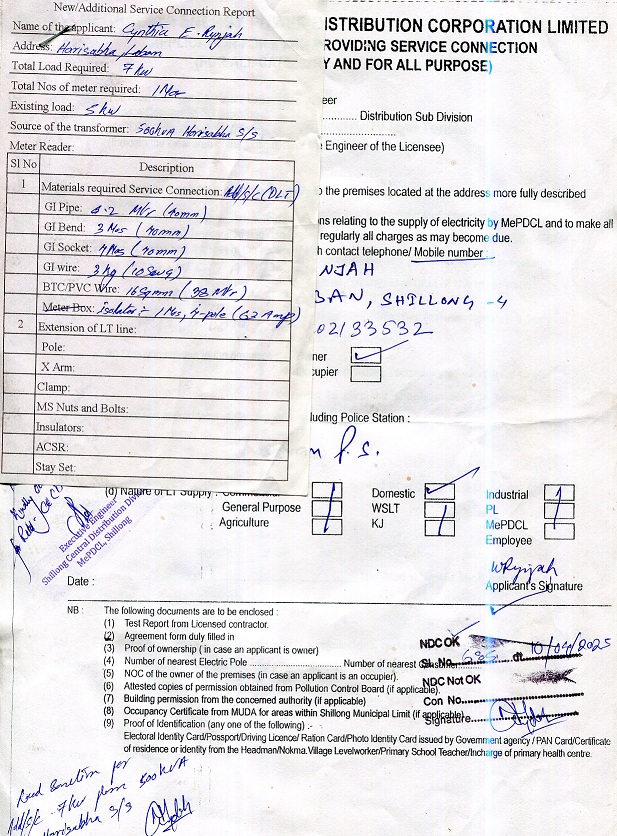 New/Additional Service Connection Report
Name of the applicant: Cynthia E. Rynjah
Address: Horrisabha/Laban
Total Load Required: 7 kw
Total Nos of meter required: 1 No
Existing load: 5 kw
Source of the transformer: 500KVA Horrisabha S/S
Meter Reader:
Sl No Description
1 Materials required Service Connection: Add/S/C (DLT)
GI Pipe: 6.2 Mtr (40mm)
GI Bend: 3 Nos (40mm)
GI Socket: 4 Nos (40mm)
GI wire: 3 kg (10 SWG)
BTC/PVC Wire: 16 Sqmm (38 Mtr)
Meter Box: isolator :- 1 Nos, 4-pole (63 Amps)
2 Extension of LT line:
Pole:
X Arm:
Clamp:
MS Nuts and Bolts:
Insulators:
ACSR:
Stay Set:
ISTRIBUTION CORPORATION LIMITED
ROVIDING SERVICE CONNECTION
Y AND FOR ALL PURPOSE)
eer
............ Distribution Sub Division
Engineer of the Licensee)
o the premises located at the address more fully described
ns relating to the supply of electricity by MePDCL and to make all
regularly all charges as may become due.
h contact telephone/ Mobile number :
NJAH
BAN, SHILLONG - 4
02133532
ner
cupier
luding Police Station :
P.S.
(d) Nature of LT Supply :
Domestic
Industrial
General Purpose
WSLT
PL
Agriculture
KJ
MePDCL
Employee
Executive Engineer
Shillong Central Distribution Divn
MePDCL, Shillong
WRynjah
Applicant's Signature
Date :
NB : The following documents are to be enclosed :
(1) Test Report from Licensed contractor.
(2) Agreement form duly filled in
(3) Proof of ownership ( in case an applicant is owner)
(4) Number of nearest Electric Pole .............................. Number of nearest Consumer
(5) NOC of the owner of the premises (in case an applicant is an occupier).
(6) Attested copies of permission obtained from Pollution Control Board (if applicable).
(7) Building permission from the concerned authority (if applicable)
(8) Occupancy Certificate from MUDA for areas within Shillong Municipal Limit (if applicable)
(9) Proof of Identification (any one of the following) :
Electoral Identity Card/Possport/Driving Licence/ Ration Card/Photo Identity Card issued by Government agency / PAN Card/Certificate
of residence or identity from the Headman/Nokma.Village Levelworker/Primary School Teacher/Incharge of primary health centre.
NDC OK
Sl. No. dt. 10/04/2025
NDC Not OK
Con No.
Signature
Read Sanction for
Add/S/C 7 kw from 500KVA
Horrisabha S/S